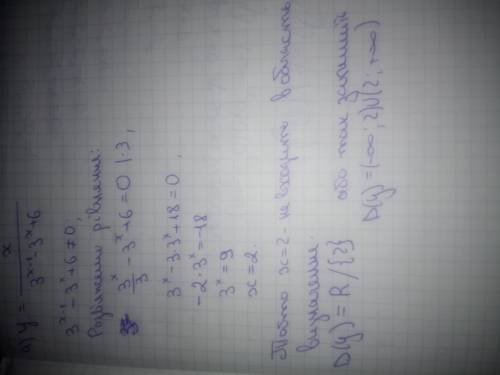 а) y = x / (3^(x-1) - 3^x + 6)
3^(x-1) - 3^x + 6 ≠ 0;
Розв'яжемо рівняння:
3^x/3 - 3^x + 6 = 0 |·3,
3^x - 3·3^x + 18 = 0,
-2·3^x = -18
3^x = 9
x = 2.
Тобто x = 2 - не входить в область
визначення.
D(y) = R / {2} або так запишем
D(y) = (-∞; 2)∪(2; +∞)